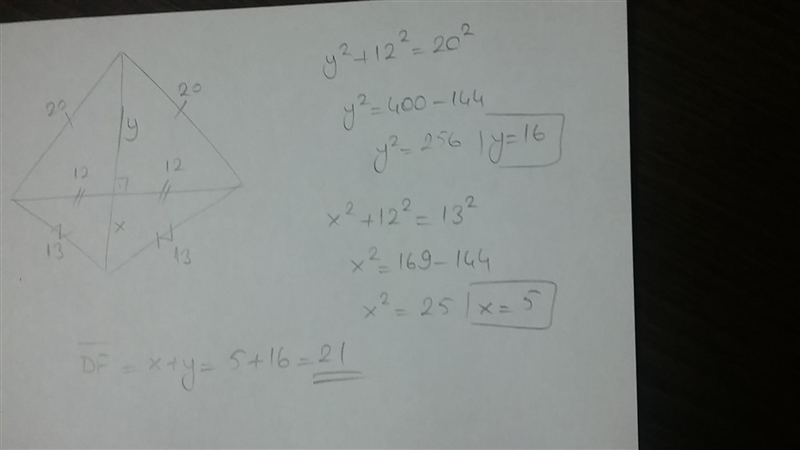 20 20
y
12 12
x
13 13
y² + 12² = 20²
y² = 400 - 144
y² = 256 | y = 16
x² + 12² = 13²
x² = 169 - 144
x² = 25 | x = 5
D̅F̅ = x + y = 5 + 16 = 21